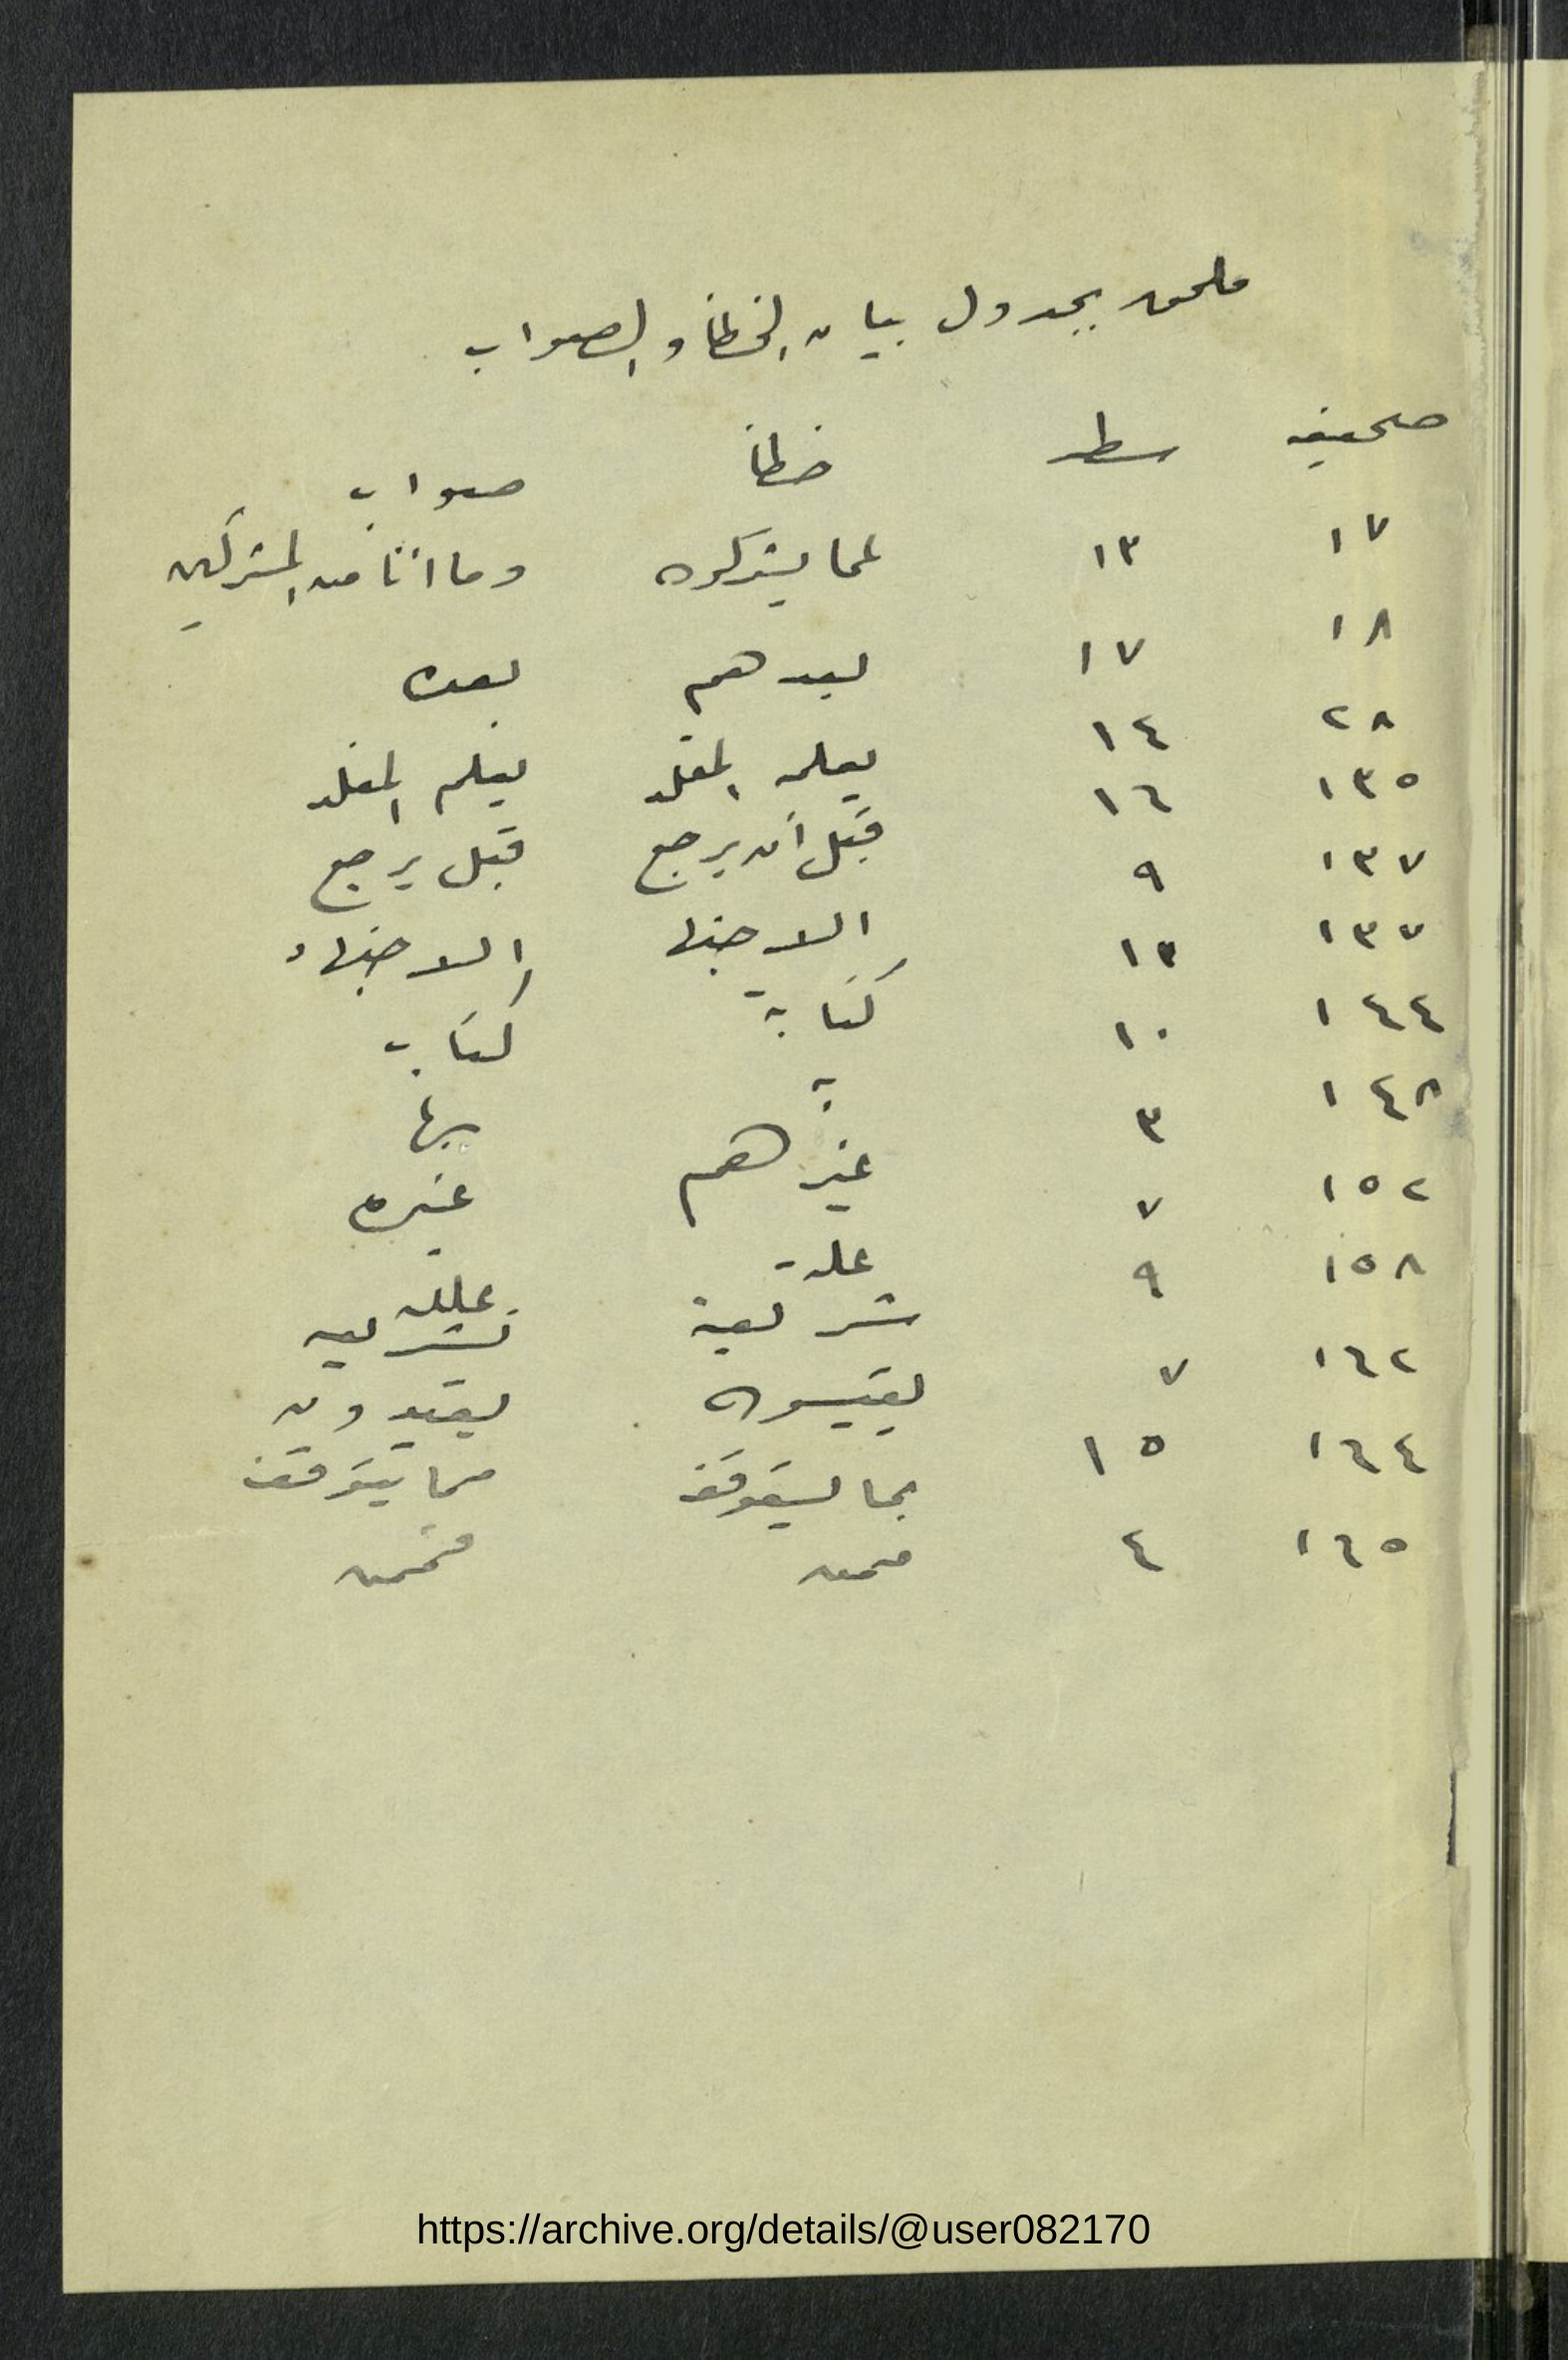 ملحق بجدول بيان الخطأ والصواب
صحيفه سطر خطأ صواب
١٧ ١٣ عما يشركون وما انا من المشركين
١٨ ١٧ بعدهم بعده
٢٨ ١٤ يعلمه المقلد يعلم المقلد
١٣٥ ١٦ قبل أن يرجع قبل يرجع
١٣٧ ٩ الاجتها الاجتهاد
١٣٧ ١٣ كتابة كتاب
١٤٤ ١٠ به بها
١٤٨ ٣ غيرهم غيره
١٥٢ ٧ علة علله
١٥٨ ٩ شريعة تشريعيه
١٦٢ ٧ يقيسون يقيدون
١٦٤ ١٥ بما يتوقف مما يتوقف
١٦٥ ٤ فمن فممن
https://archive.org/details/@user082170